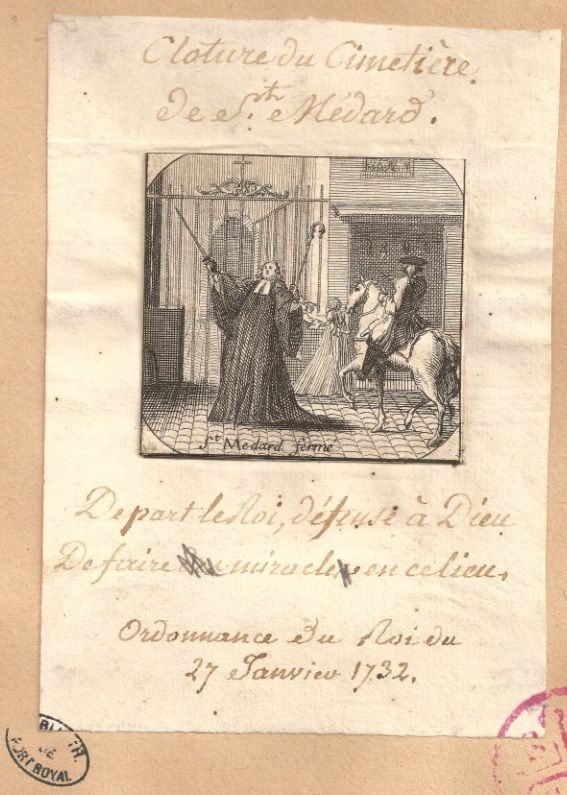 Cloture du Cimetière
de S.th Médard.
St Medard fermé
De part le Roi, défense à Dieu
De faire miracle en ce lieu.
Ordonnance du Roi du
27 Janvier 1732.
BIBLTH.
DE
PORT ROYAL